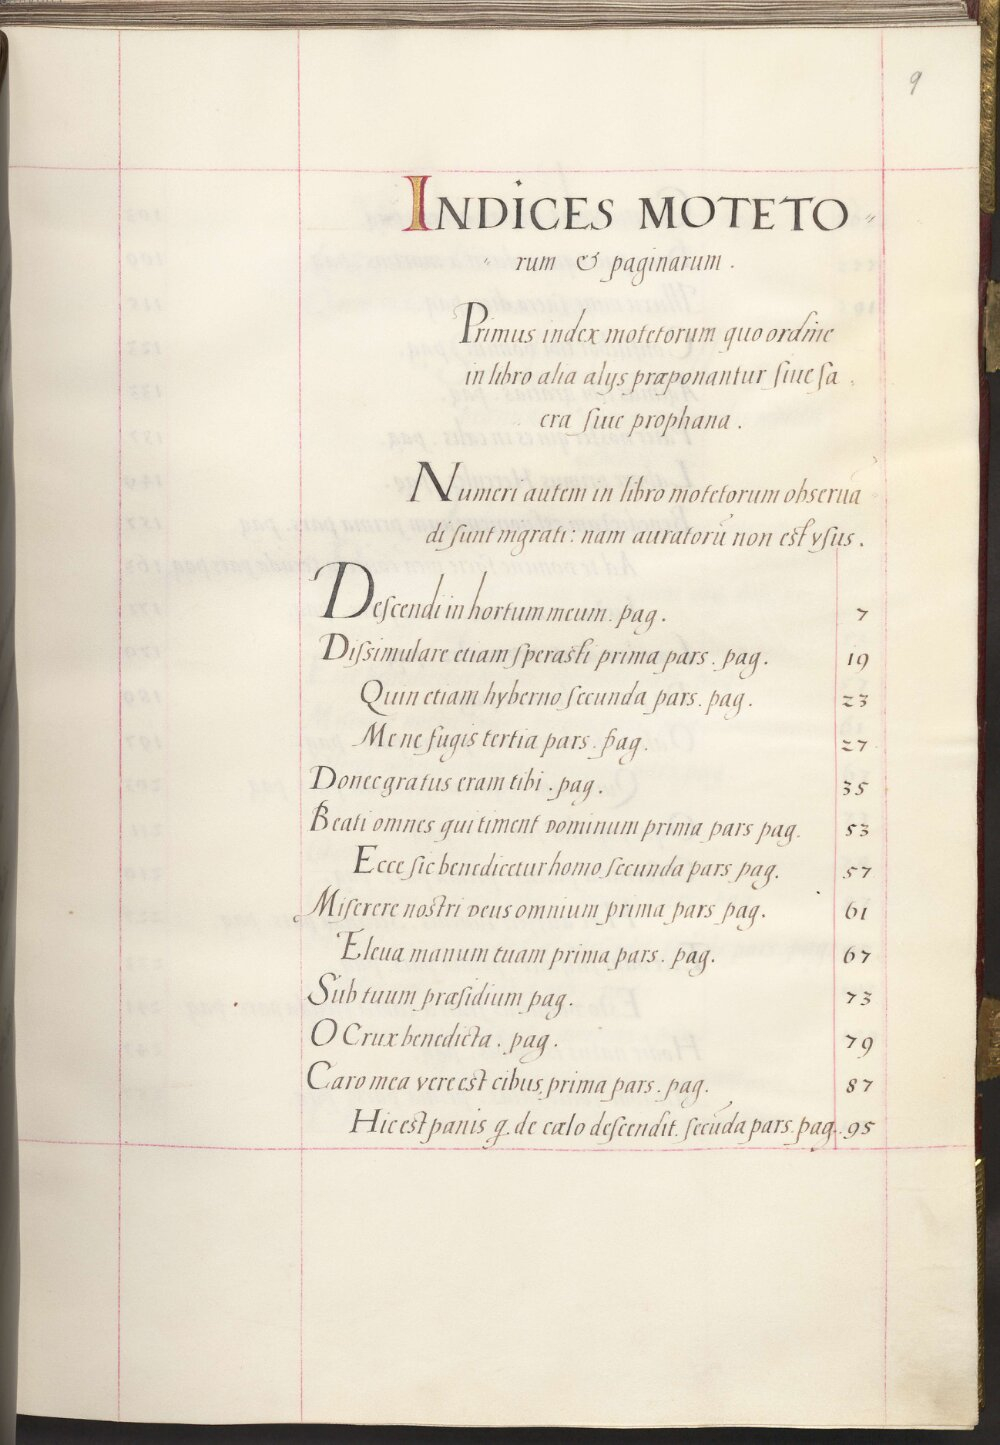 9
INDICES MOTETO=
=rum & paginarum.
Primus index motetorum quo ordine
in libro alia alys præponantur ſiue ſa
cra ſiue prophana.
Numeri autem in libro motetorum obseruā
di ſunt nigrati: nam auratorū non est vſus.
Deſcendi in hortum meum. pag. 7
Diſsimulare etiam ſperasti prima pars. pag. 19
Quin etiam hyberno ſecunda pars. pag. 23
Me ne fugis tertia pars. pag. 27
Donec gratus eram tibi. pag. 35
Beati omnes qui timent Dominum prima pars pag. 53
Ecce ſic benedicetur homo ſecunda pars pag. 57
Miſerere nostri Deus omnium prima pars pag. 61
Eleua manum tuam prima pars. pag. 67
Sub tuum præſidium pag. 73
O Crux benedicta. pag. 79
Caro mea vere est cibus. prima pars. pag. 87
Hic est panis q. de cælo deſcendit. ſecūda pars. pag. 95